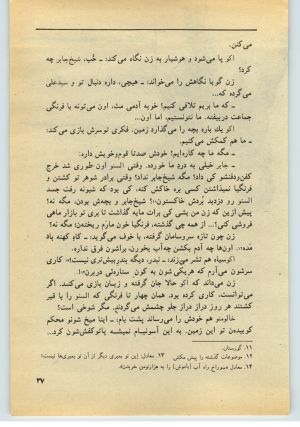 می‌کنن.
اکو پا می‌شود و هوشیار به زن نگاه می‌کند: ـ خُب، شیخ‌جابر چه
کرد؟
زن گویا نگاهش را می‌خواند: ـ هیچی، داره دنبال تو و سیدعلی
می‌گرده که...
ـ که ما بریم تلافی کنیم؟ خوبه آدمی مث، اون می‌تونه با فرنگی
جماعت دربیفته. ما نتونستیم، اما اون...
اکو یك باره بچه را می‌گذارد زمین. فکری توسرش بازی می‌کند:
ـ ما هم کمکش می‌کنیم.
ـ مگه ما چه کاره‌ایم؟ خودش صدتا قوم‌وخویش داره:
ـ جابر خیلی به درد ما خورده. وقتی السنو اون طوری شد خرج
کفن‌ودفنشو کی داد؟ مگه شیخ‌جابر نداد؟ وقتی برادر شوهر تو کشتن و
فرنگیا نمیذاشتن کسی بره خاکش کنه، کی بود که شبونه رفت جسد
السنو رو دزدید بُردش خاکستون»؟ شیخ‌جابر و بچه‌ش بودن، مگه نه؟
پیش ازین که زن من بشی کی برات مایه گذاشت تا بری تو بازار ماهی
فروشی کنی؟... از همه چی گذشته، فرنگیا خون مارم ریختهن؟ مگه نه؟
زن چون تازه سروسامان گرفته، با خوف می‌گوید: ـ کاکو کهنه باد
مده». اون‌ها چه آدم بکشن چه‌آب بخورن، براشون فرق نداره.
اکوسیاه هم تشر می‌زند: ـ نبدر، دیگه بندر پیش‌تری نیست!» کاری
سرشون می‌آرم که هریکی شون یه کون ستاره‌ئی دربرن»!.
زن می‌داند که اکو حالا جان گرفته و زیان بازی می‌کند. اگر
می‌توانست، کاری کرده بود. همان چهار تا فرنگی که السنو را با قیر
کشتند هر روز دراز دراز جلو چشمش می‌گردند. مگر شوخی است؟
خالومنو هم خودش را می‌رساند پشت بام: ـ اینا میخ شونو محکم
کوبیده‌ن تو این زمین. به این آسونیام نمیشه پاتوکفش‌شون کرد...
۱۱. گورستان.
۱۲. موضوعات گذشته را پیش مکش. ۱۳. معادل: این تو بمیری دیگر از آن تو بمیری‌ها نیست؛
۱۴. معادل را به هزارتومن خریدن».
۳۷